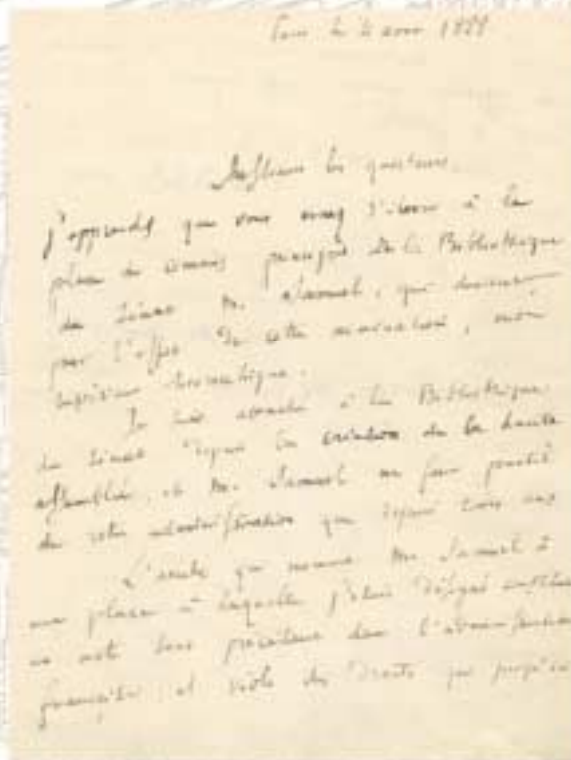 Messieurs les questeurs,
J'apprends que vous venez d'élever à la
place de commis principal de la Bibliothèque
du Sénat M. Samuel, qui devient
par l'effet de cette nomination, mon
supérieur hiérarchique.
Je suis attaché à la Bibliothèque
du Sénat depuis la création de la haute
assemblée, et M. Samuel ne fait partie
de cette administration que depuis trois ans
L'arrêté qui nomme M. Samuel à
une place à laquelle j'étais désigné
un acte sans précédent dans l'administration
française et viole des droits que